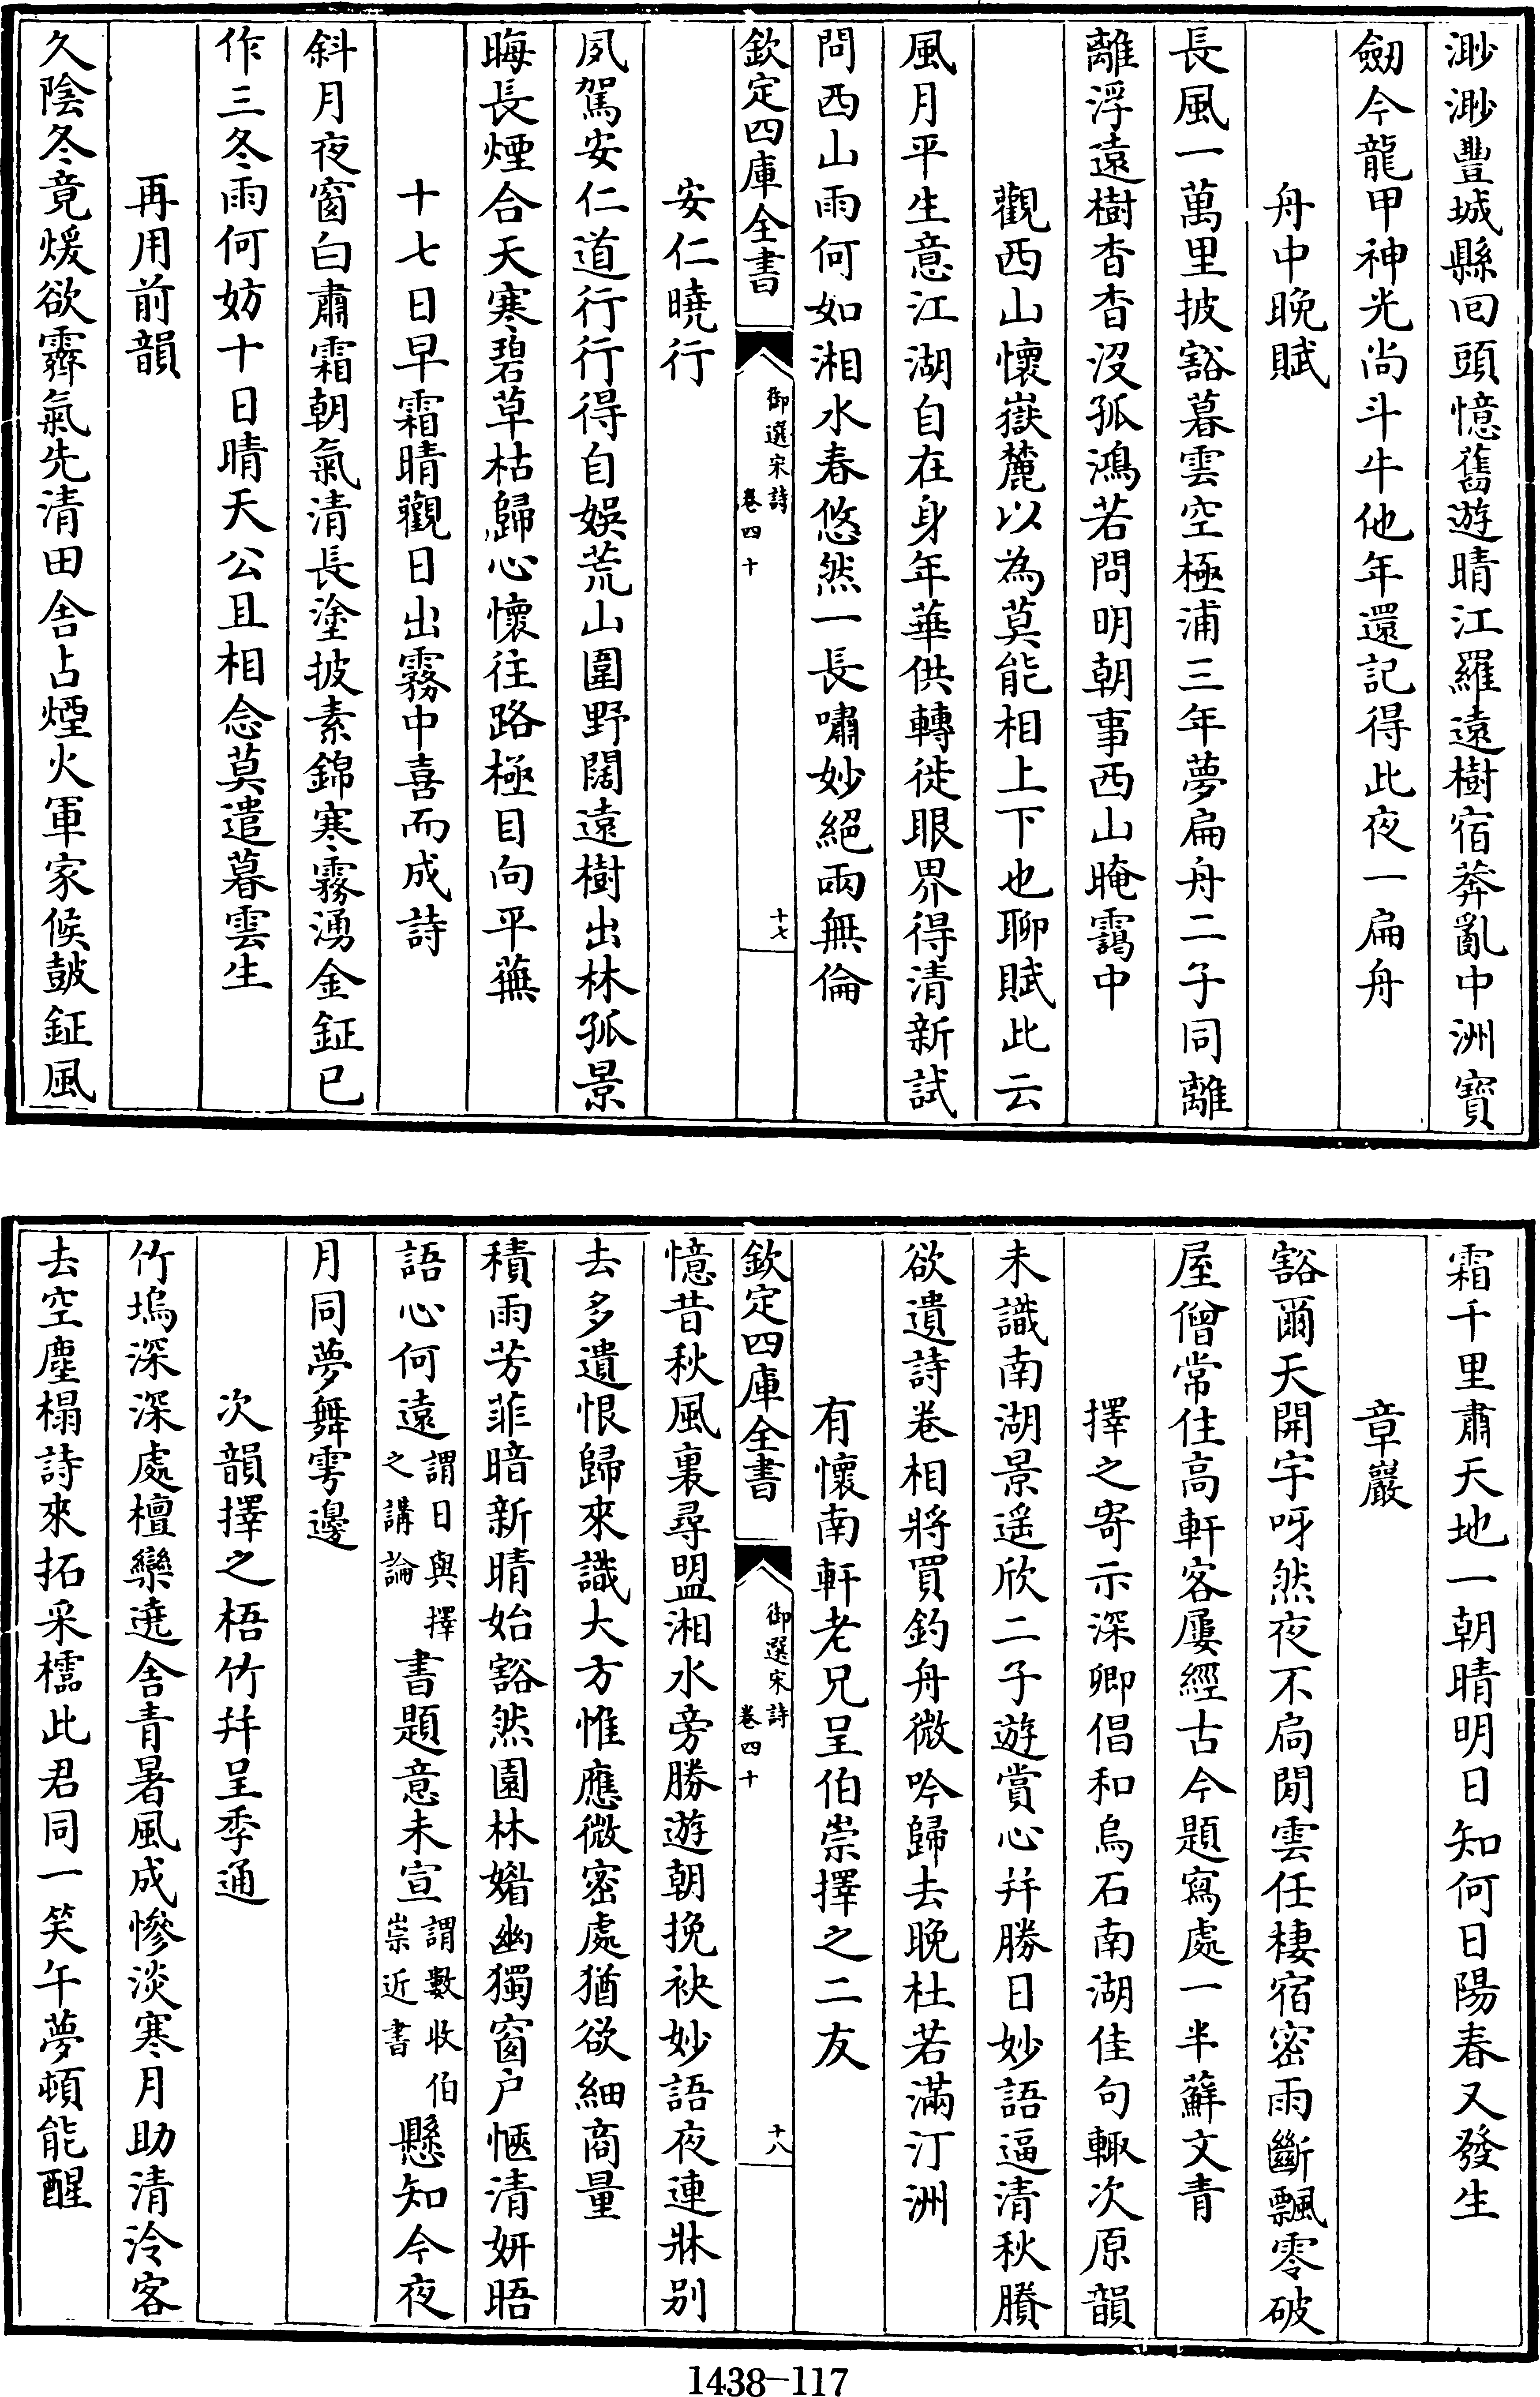 渺渺豐城縣回頭憶舊遊晴江羅遠樹宿莽亂中洲寶
劒今龍甲神光尚斗牛他年還記得此夜一扁舟
舟中晚賦
長風一萬里披豁暮雲空極浦三年夢扁舟二子同離
離浮遠樹杳杳沒孤鴻若問明朝事西山晻靄中
觀西山懷嶽麓以為莫能相上下也聊賦此云
風月平生意江湖自在身年華供轉徙眼界得清新試
問西山雨何如湘水春悠然一長嘯妙絕兩無倫
欽定四庫全書
御選宋詩
卷四十
十七
安仁曉行
夙駕安仁道行行得自娛荒山圍野闊遠樹出林孤景
晦長煙合天寒碧草枯歸心懷往路極目向平蕪
十七日早霜晴觀日出霧中喜而成詩
斜月夜窗白肅霜朝氣清長塗披素錦寒霧湧金鉦已
作三冬雨何妨十日晴天公且相念莫遣暮雲生
再用前韻
久陰冬竟煖欲霽氣先清田舍占煙火軍家候鼓鉦風
霜千里肅天地一朝晴明日知何日陽春又發生
章巖
豁爾天開宇呀然夜不扃閒雲任棲宿密雨斷飄零破
屋僧常住高軒客屢經古今題寫處一半蘚文青
擇之寄示深卿倡和烏石南湖佳句輒次原韻
未識南湖景遥欣二子遊賞心并勝日妙語逼清秋賸
欲遺詩卷相將買釣舟微吟歸去晚杜若滿汀洲
有懷南軒老兄呈伯崇擇之二友
欽定四庫全書
御選宋詩
卷四十
十八
憶昔秋風裏尋盟湘水旁勝遊朝挽袂妙語夜連牀別
去多遺恨歸來識大方惟應微密處猶欲細商量
積雨芳菲暗新晴始豁然園林媚幽獨窗户愜清妍晤
語心何遠謂日與擇之講論書題意未宣謂數收伯崇近書懸知今夜
月同夢舞雩邊
次韻擇之梧竹并呈季通
竹塢深深處檀欒遶舍青暑風成慘淡寒月助清泠客
去空塵榻詩來拓采櫺此君同一笑午夢頓能醒
1438—117